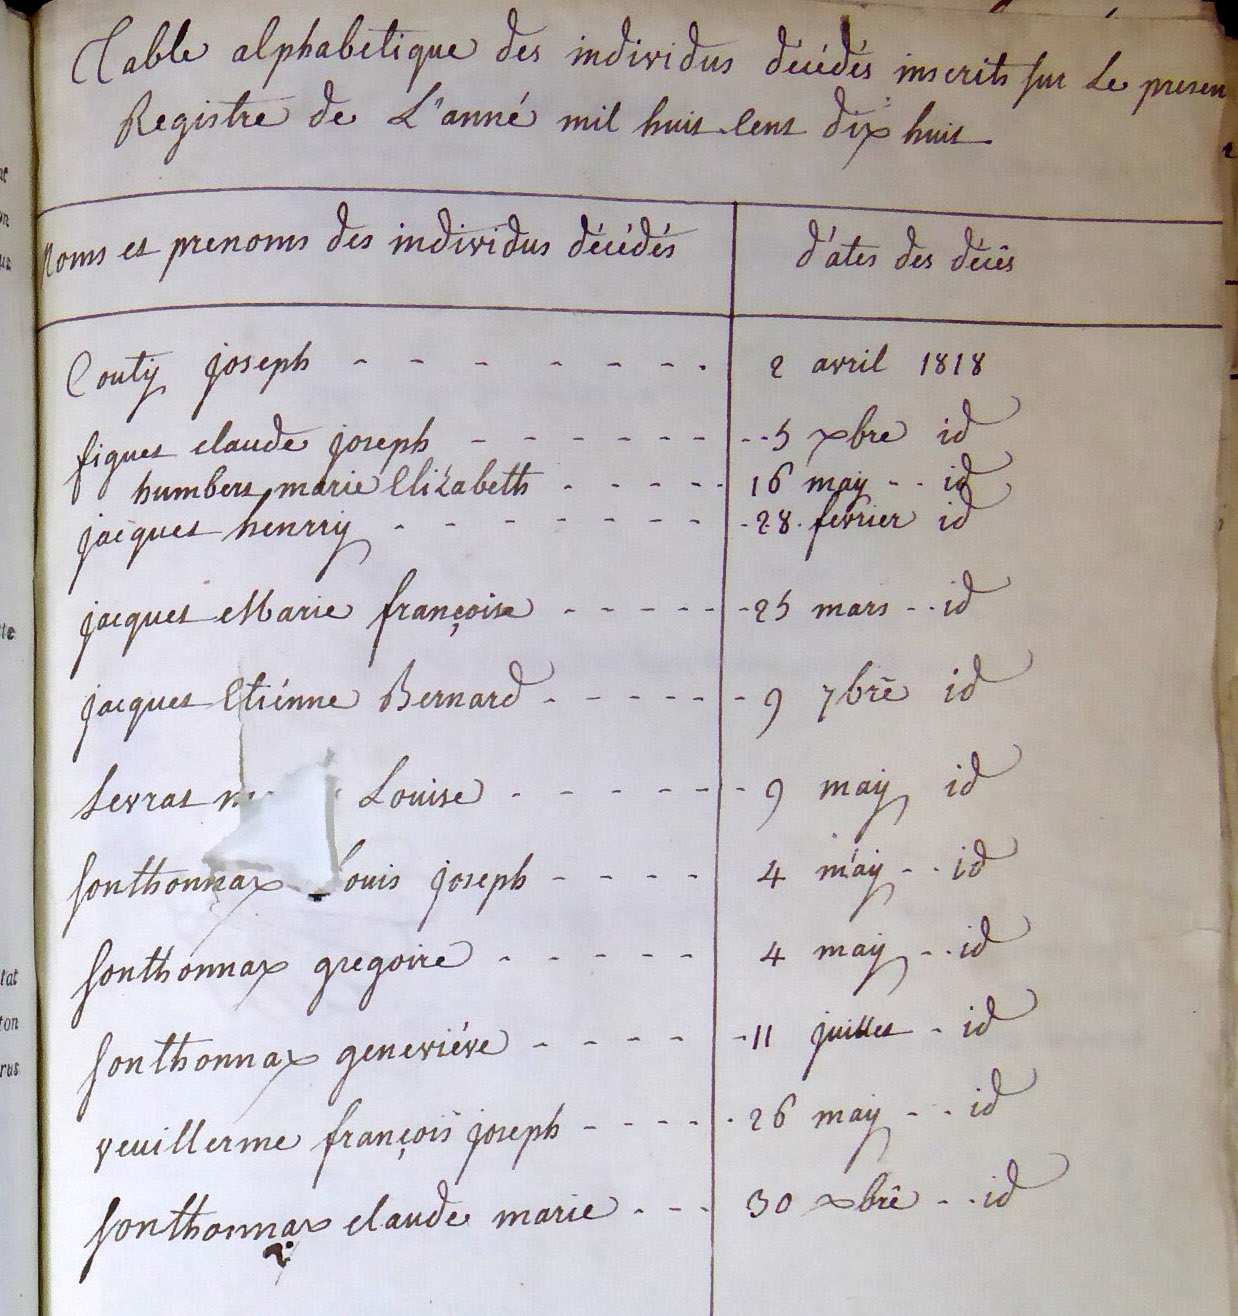 Table alphabetique des individus décédés inscrits sur Le presen
Registre de L'anné mil huit Cent dix huit
Noms et prenoms des individus décédés dates des décês
Couty joseph - - - - - - - . 2 avril 1818
figuet claude joseph - - - - - - - - - 5 xbre id
humbert marie Elizabeth - - - - - 16 may - - id
jacquet henrry - - - - - - - - 28 fevrier id
jacquet Marie françoise - - - - - - 25 mars - - id
jacquet Etiénne Bernard - - - - - - - 9 7bre id
Louise - - - - - - - 9 may id
sonthonnax Louis joseph - - - - 4 may - - id
sonthonnax gregoire - - - - - 4 may - - id
sonthonnax geneviéve - - - - - 11 juillet - id
veuillerme françois joseph - - - - - 26 may - - id
sonthonnax claude marie - - - 30 xbrê - - id